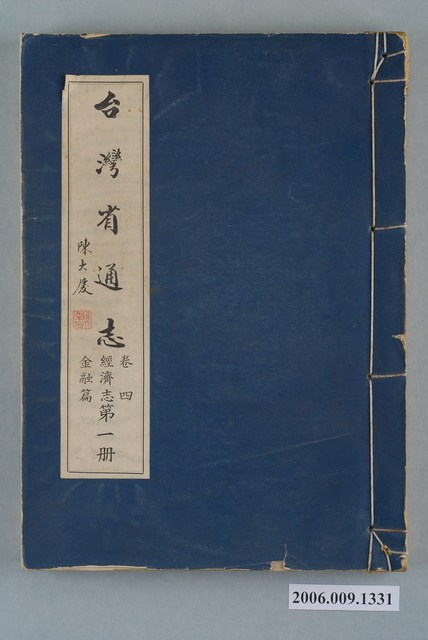 台灣省通志
卷四
經濟志
金融篇
第一册
陳大慶
2006.009.1331